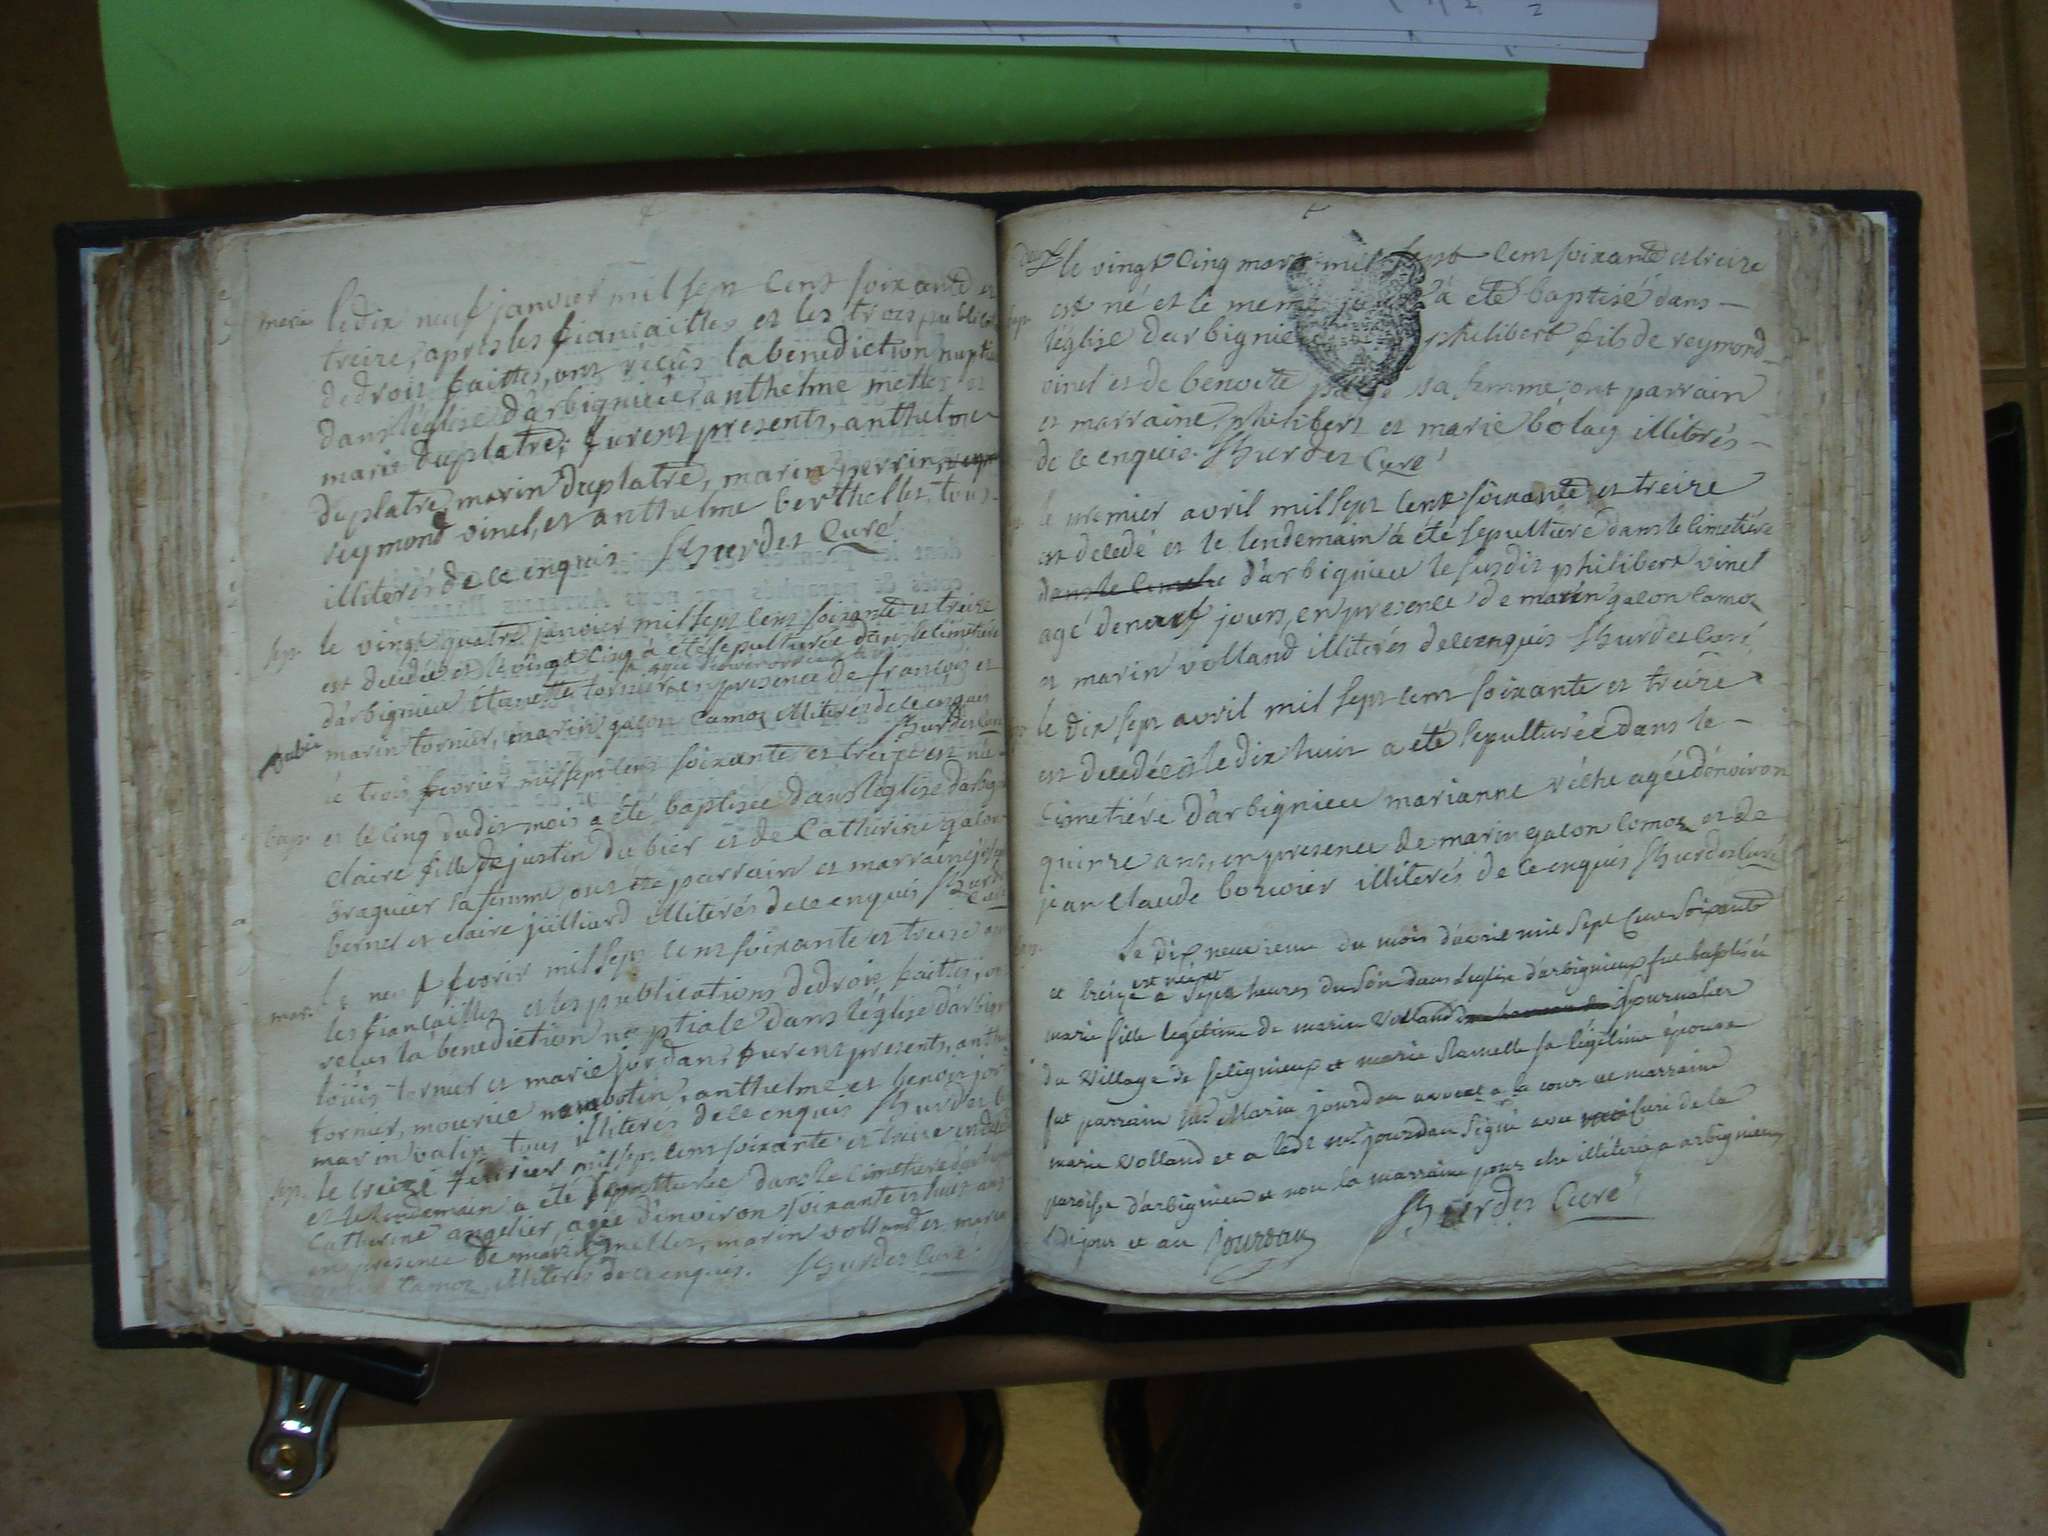 mari
le dix neuf janvier mil sept cent soixante et
treize, apres les fiancailles et les trois publica
de droit faittes, ont recûs la benediction nuptia
dans l'église d'arbignieu anthelme mettez et
marie duplatre; furent presents, anthelme
duplatre, marin duplatre, marin perrin,
reymond vinel, et anthelme berthellet tous
illiterés de ce enquis. Shurdet Curé
sep.
le vingt quatre janvier mil sept cent soixante et treize
est decedée et le vingt cinq à été sepulturée dans le cimetiére
d'arbignieu etienette tornier en presence de francois et
marin tornier, marin galon lamoz illiterés de ce enquis
Shurdet Curé
dubié
le trois fevrier mil sept cent soixante et treize est née
bap.
et le cinq dudit mois a été baptisée dans l'église d'arbign
claire fille de justin dubier et de Catherine galon
braqueur sa femme, ont été parrain et marraine
bernel et claire juilliard illiterés de ce enquis Shurdet
Curé
mar.
le neuf fevrir mil sept cent soixante et treize
les fiancailles et les publications de droit faittes, on
recus la benediction nuptiale dans l'église d'arbign
loüis tornier et marie jordan, furent presents, anthe
tornier, mourice nambotin, anthelme et benoit jor
marin valin tous illiterés de ce enquis Shurdet
sep.
le treize fevrier mil sept cent soixante et treize
et le lendemain a été sepulturée dans le cimetiere d'arbign
Catherine angelier, agée d'environ soixante et huit ans
en presence de marin mellez, marin volland et marin
lamoz illiterés de ce enquis. Shurdet Curé
le vingt cinq mars mil sept cent soixante et treize
bap.
est né et le meme jour à été baptisé dans
l'église d'arbignieu philibert fils de reymond
vinel et de benoite sa femme, ont parrain
et marraine, philibert et marie bolay illiterés
de ce enquis. Shurdet Curé
le premier avril mil sept cent soixante et treize
est decedé et le lendemain à été sepulturé dans le cimetiére
dans le d'arbignieu le susdit philibert vinel
agé de neuf jours, en presence de marin galon lamoz
et marin volland illiterés de ce enquis Shurdet Curé
le dix sept avril mil sept cent soixante et treize
est decedée et le dix huit a été sepulturée dans le
Cimetiére d'arbignieu marianne réche agée d'environ
quinze ans, en presence de marin galon lamoz et de
jean claude bouvier illiterés de ce enquis Shurdet Curé
Le dix neuvieme du mois d'avril mil sept cent soixante
est née et
et treize a sept heures du soir dans l'eglise d'arbignieu fut baptisée
marie fille legitime de marin volland journalier
du village de pelignieux et marie Ramelle sa légitime épouse
fut parrain Mr Marin jourdan avocat a la cour et marraine
marie volland et a ledt mr jourdan signé avec curé de la
paroisse d'arbignieu et non la marraine pour etre illiterée a arbignieu
jour et an jourdan Shurdet Curé